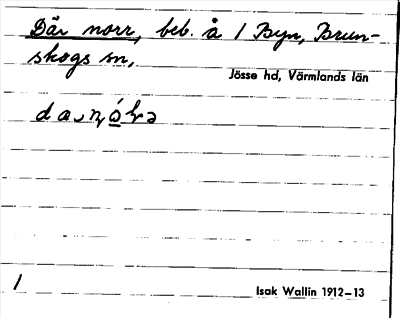 Där norr, beb. å 1 Byn, Brun-
skogs sn,
Jösse hd, Värmlands län
1
Isak Wallin 1912–13